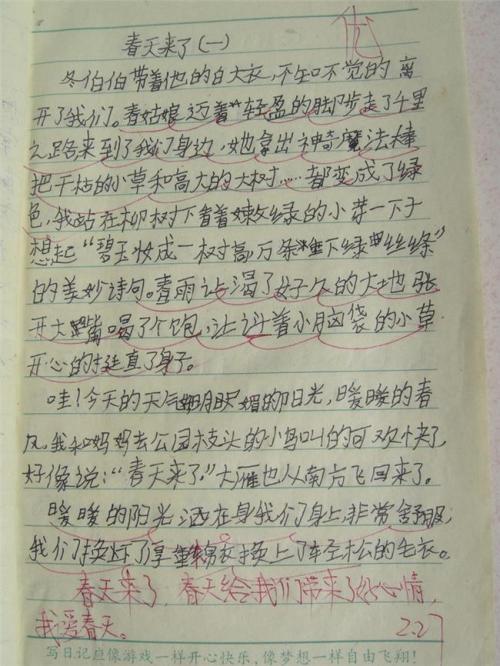 春天来了(一)
优
冬伯伯带着他的白大衣,不知不觉的离
开了我们。春姑娘迈着轻盈的脚步走了千里
之路来到了我们身边,她拿出神奇魔法棒
把干枯的小草和高大的大树……都变成了绿
色,我站在柳树下看着嫩绿的小芽一下子
想起“碧玉妆成一树高万条垂下绿丝绦”
的美妙诗句。春雨让渴了好久的大地张
开大嘴喝了个饱,让计着小脑袋的小草
开心的挺直了身子。
哇!今天的天气明媚的阳光,暖暖的春
风,我和妈妈去公园枝头的小鸟叫的可欢快了
好像说:“春天来了。”大雁也从南方飞回来了。
暖暖的阳光洒在身我们身上,非常舒服,
我们换下了厚棉衣换上了轻松的毛衣。
春天来了,春天给我们带来了好心情,
我爱春天。 2.27
写日记应像游戏一样开心快乐、像梦想一样自由飞翔!